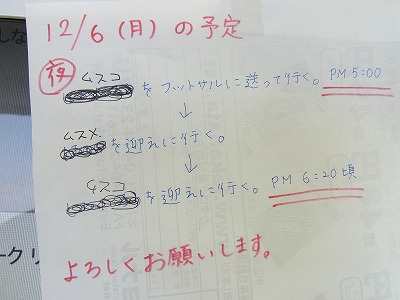 12/6(月)の予定
夜 ムスコ
をフットサルに送って行く。 PM5:00
↓
ムスメ
を迎えに行く。
↓
ムスコ
を迎えに行く。 PM 6:20頃
よろしくお願いします。